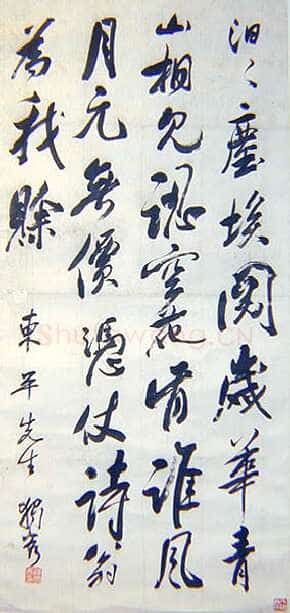 汩〻塵埃閱歲華青
山相見認空花誰風
月元無價憑仗詩翁
為我賒
東平先生 獨秀